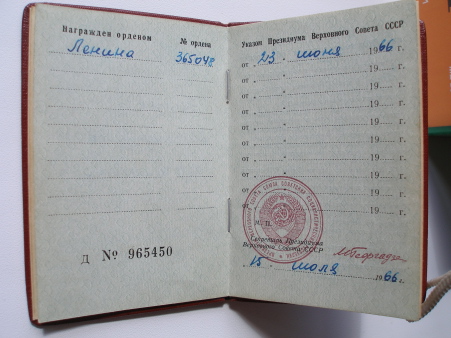 Награжден орденом
№ ордена
Ленина
365048
Д № 965450
Указом Президиума Верховного Совета СССР
от „ 23 “ июня 1966 г.
от „ “ 19 г.
от „ “ 19 г.
от „ “ 19 г.
от „ “ 19 г.
от „ “ 19 г.
от „ “ 19 г.
от „ “ 19 г.
от „ “ 19 г.
М. П.
Секретарь Президиума
Верховного Совета СССР
„ 15 “ июля 1966 г.